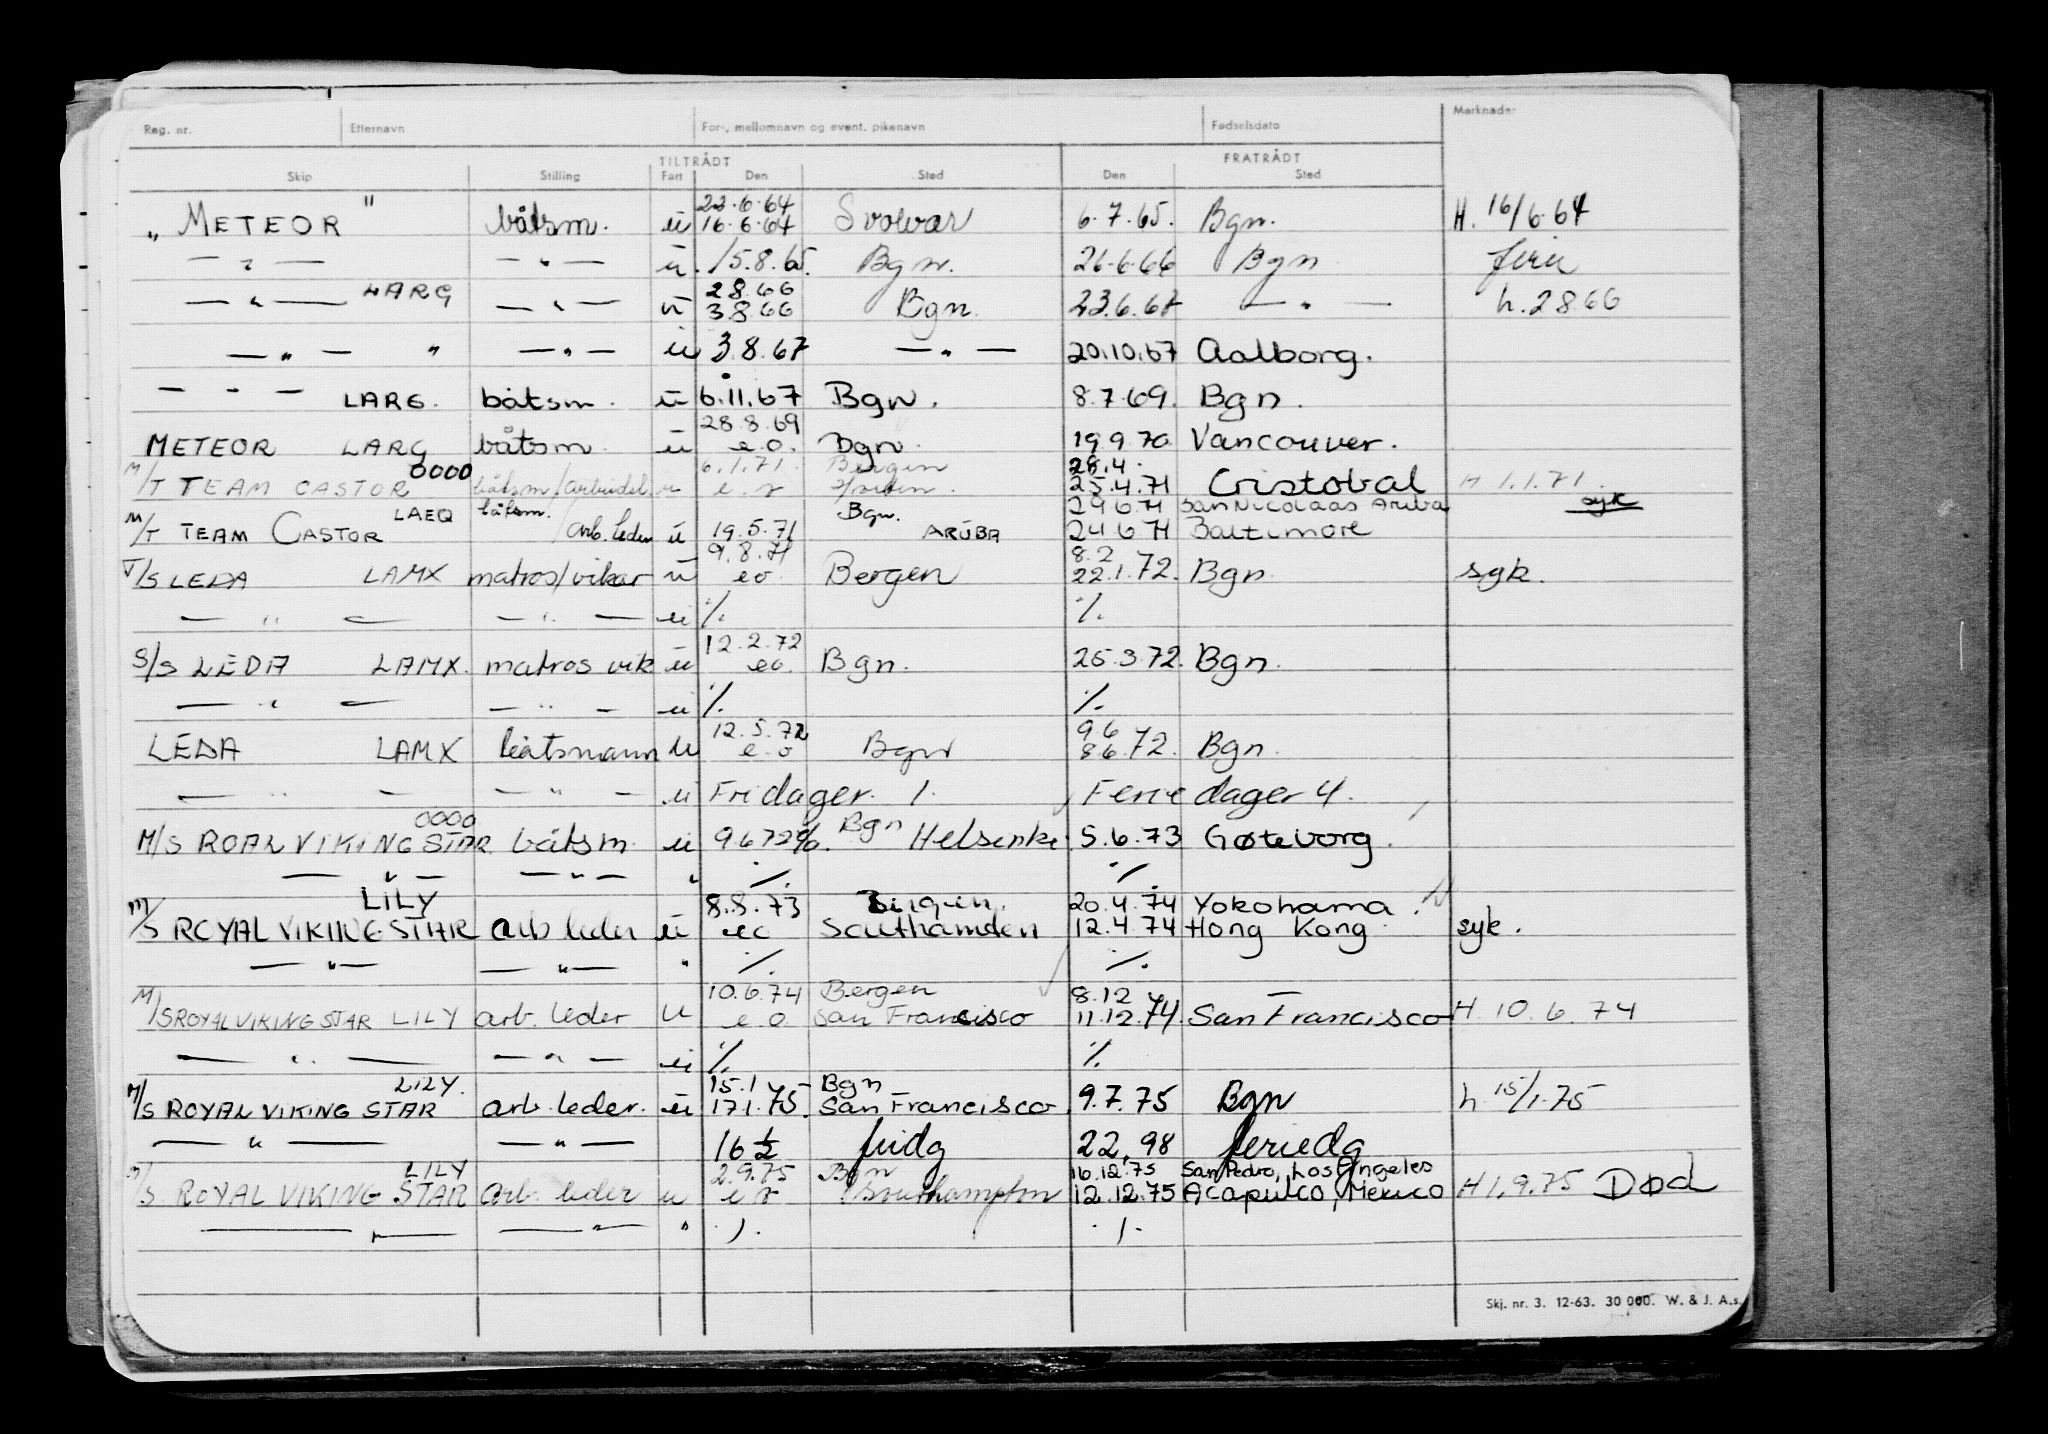 Reg. nr. Etternavn For-, mellomnavn og event. pikenavn Fødselsdato Merknader
TILTRÅDT FRATRÅDT
Skip Stilling Fart Den Sted Den Sted
22.6.64
"METEOR" båtsm. u 16.6.64 Svolvær 6.7.65. Bgn. H. 16/6.64
— " — — " — u. 15.8.65. Bgn. 26.6.66 Bgn ferie
LARG 2866
— " — — " — u 3.8.66 Bgn. 23.6.67 — " — h. 2866
— " — " — " — u 3.8.67 — " — 20.10.67 Aalborg.
— - — LARG. båtsm. u 6.11.67 Bgn. 8.7.69. Bgn.
28.8.69
METEOR LARG båtsm. u e.o. Bgn. 19.9.70 Vancouver.
0000 6.1.71. Bergen 28.4.
M/T TEAM CASTOR båtsm/arbeidsl. u 25.4.71 Cristobal H 1.1.71.
LAEQ båtsm. Bgn. 29671 San Nicolaas Aruba syk
M/T TEAM CASTOR /arb. leder u 19.5.71 ARUBA 24671 Baltimore
9.8.71 8.2
T/S LEDA LAMX matros/vikar u eo Bergen 22.1.72. Bgn syk.
— " — — " — u ·/. ·/.
12.2.72
S/S LEDA LAMX. matros vik u eo. Bgn. 25.3.72. Bgn.
— " — — " — u ·/. ·/.
12.5.72 96
LEDA LAMX båtsmann u e.o Bgn 86.72. Bgn.
— " — — " — u Fridager. 1. Ferie dager 4.
0000 Bgn
M/S ROAL VIKING STAR båtsm. u 9672 Helsinki 5.6.73 Gøteborg.
— " — — " — " ·/. ·/.
LILY 8.8.73 Bergen. 20.4.74 Yokohama.
M/S ROYAL VIKING STAR arb leder u eo Southamden 12.4.74 Hong Kong syk.
— " — — " — " ·/. ·/.
10.6.74 Bergen 8.12
M/S ROYAL VIKING STAR LILY arb. leder u e.o. San Francisco 11.12.74. San Francisco H 10.6.74
— " — — " — u ·/. ·/.
LILY. 15.1 Bgn
M/S ROYAL VIKING STAR arb. leder. u 171.75. San Francisco 9.7.75 Bgn h 15/1.75
— " — — " — 16 ½ fridg 22,98 feriedg
LILY 2.9.75 Bgn 16.12.75 San Pedro, Los Angeles
M/S ROYAL VIKING STAR arb. leder u Southampton 12.12.75 Acapulco, Mexico H 1.9.75 Død
— " — — " — " ·/. ·/.
Skj. nr. 3. 12-63. 30 000. W. & J. A.s.